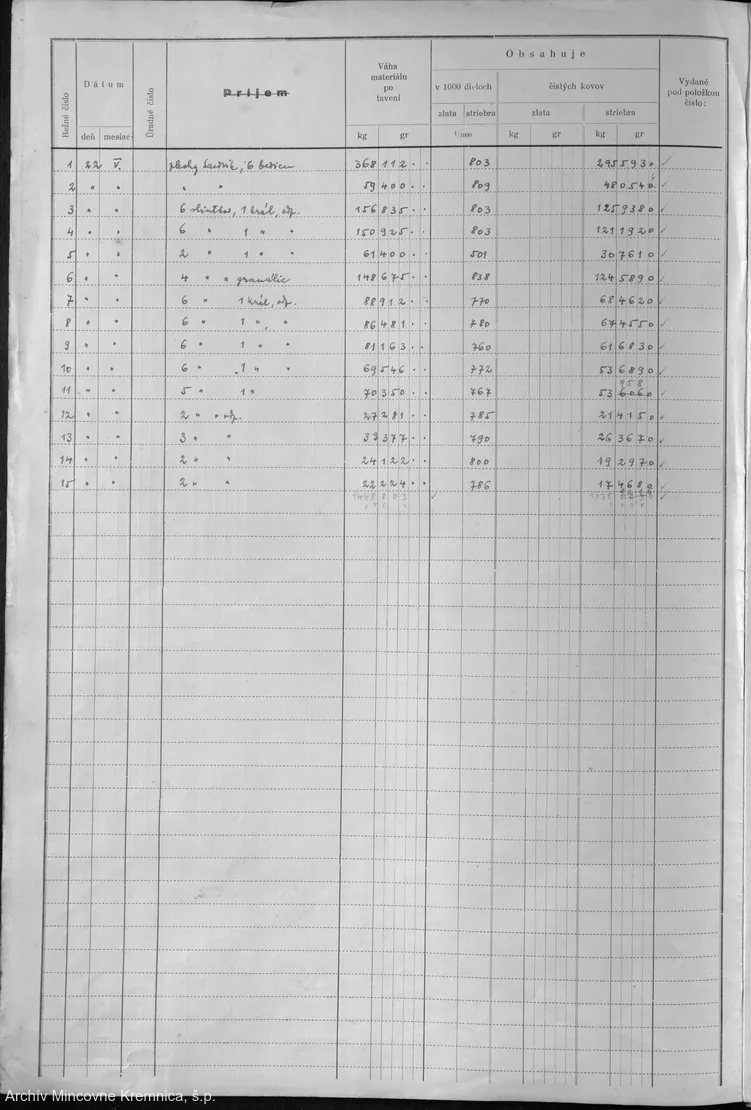 Obsahuje
Bežné číslo
Dátum
Úradné číslo
Príjem
Váha materiálu po tavení
v 1000 dieloch
čistých kovov
Vydané pod položkou číslo:
deň mesiac
zlata striebra
zlata
striebra
kg gr
1/1000
kg gr
kg gr
1 22 V. plechy Sandrik, 6 bedien 368 112 · · 803 295 593 0 ✓
2 " " " " 59 400 · · 809 48 054 0 ✓
3 " " 6 zliatkov, 1 král, odp. 156 835 · · 803 125 938 0 ✓
4 " " 6 " 1 " " 150 925 · · 803 121 192 0 ✓
5 " " 2 " 1 " " 61 400 · · 501 30 761 0 ✓
6 " " 4 " a granálie 148 675 · · 838 124 589 0 ✓
7 " " 6 " 1 král, odp. 88 912 · · 770 68 462 0 ✓
8 " " 6 " 1 " " 86 481 · · 780 67 455 0 ✓
9 " " 6 " 1 " " 81 163 · · 760 61 683 0 ✓
10 " " 6 " 1 " " 69 546 · · 772 53 689 0 ✓
958
11 " " 5 " 1 " 70 350 · · 767 53 606 0 ✓
12 " " 2 " " odp. 27 281 · · 785 21 415 0 ✓
13 " " 3 " " 33 377 · · 790 26 367 0 ✓
14 " " 2 " " 24 122 · · 800 19 297 0 ✓
15 " " 2 " " 22 224 · · 786 17 468 0 ✓
1448 803 ✓
Archív Mincovne Kremnica, š.p.